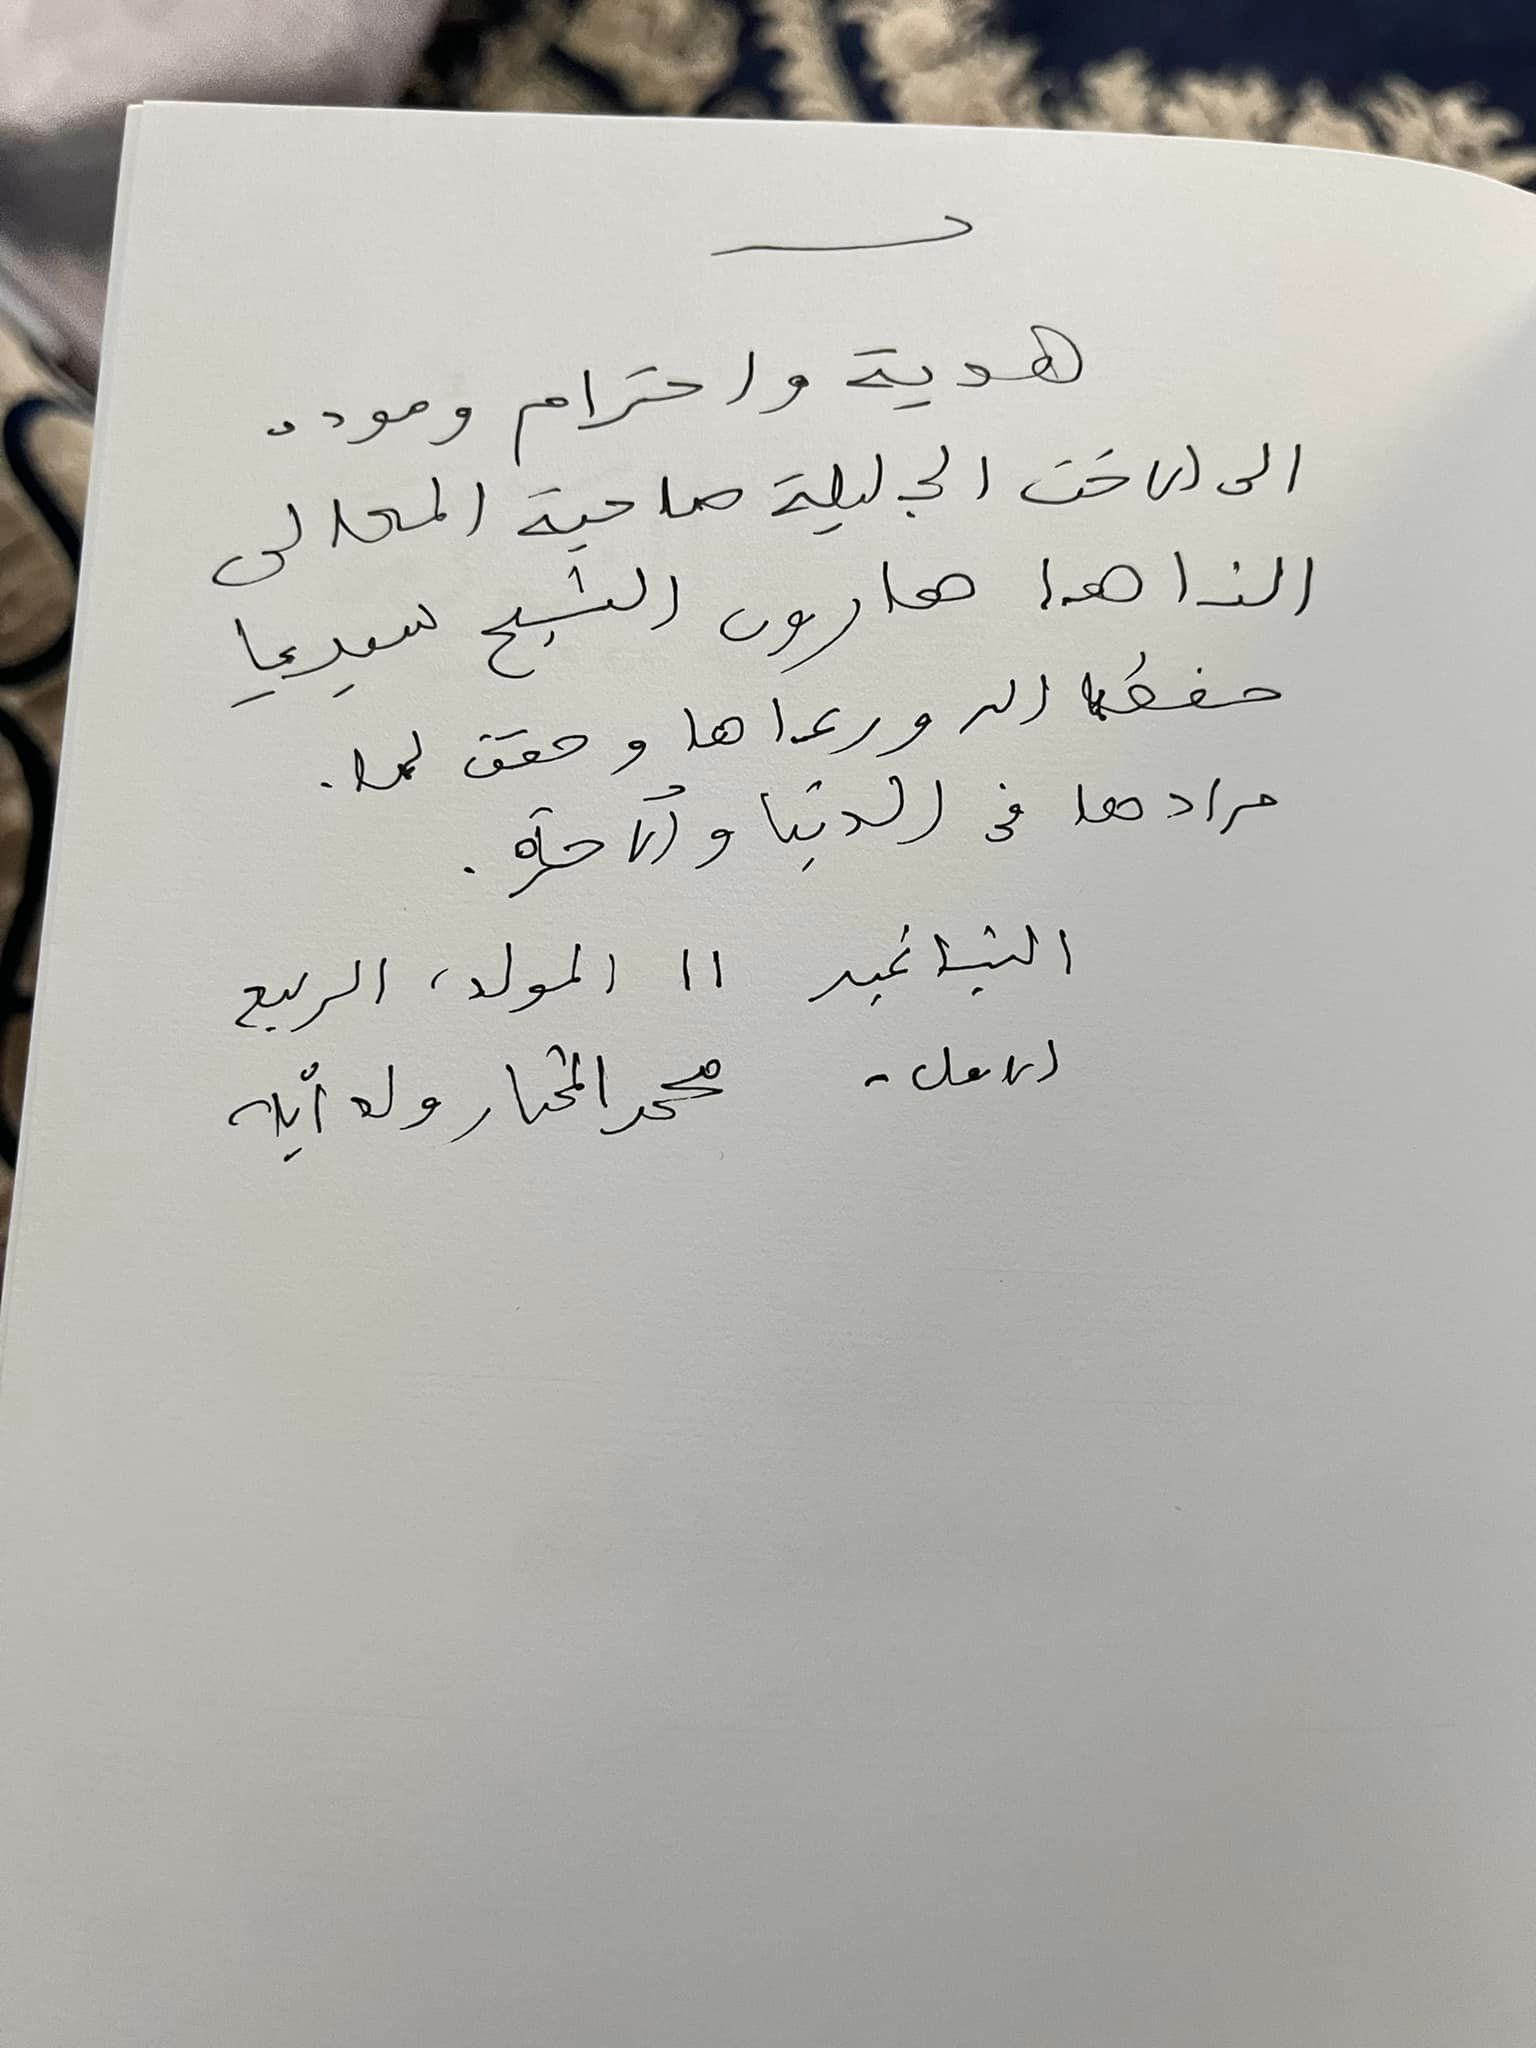 هدية واحترام ومودة
الى الأخت الجليلة صاحبة المعالى
الناها هارون الشيخ سيديا
حفظها الله ورعاها وحقق لها.
مرادها فى الدنيا والآخرة.
11 المولد، الربيع
الاول - محمد المختار ولد أباه